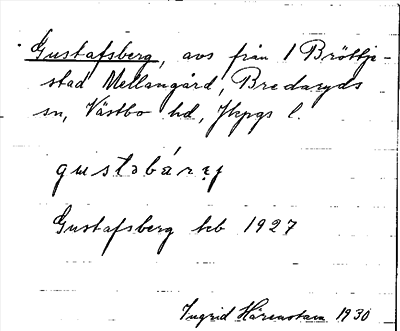 Gustafsberg, avs från 1 Bröttje-
stad Mellangård, Bredaryds
sn, Västbo hd, Jkpgs l.
gustabárj
Gustafsberg kb 1927
Ingrid Härenstam 1930